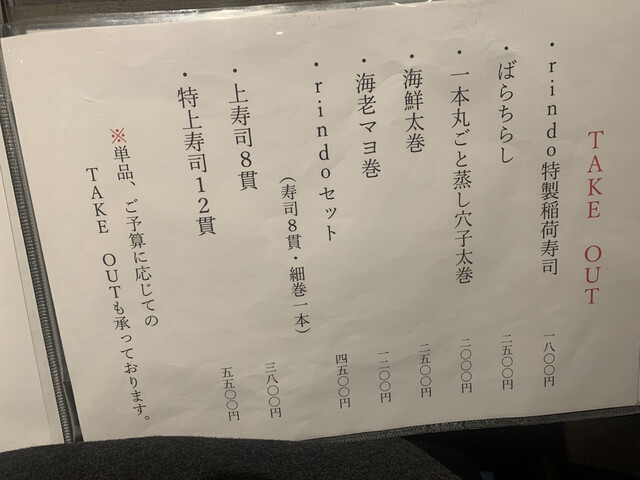 TAKE OUT
・rindo特製稲荷寿司 一八〇〇円
・ばらちらし 二五〇〇円
・一本丸ごと蒸し穴子太巻 二〇〇〇円
・海鮮太巻 二五〇〇円
・海老マヨ巻 一二〇〇円
・rindoセット 四五〇〇円
（寿司8貫・細巻一本）
・上寿司8貫 三八〇〇円
・特上寿司12貫 五五〇〇円
※単品、ご予算に応じての
TAKE OUTも承っております。